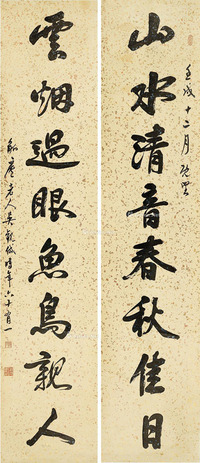 山水清音春秋佳日
壬戌十二月
雲烟過眼魚鳥親人
老人吳觀岱時年六十有一